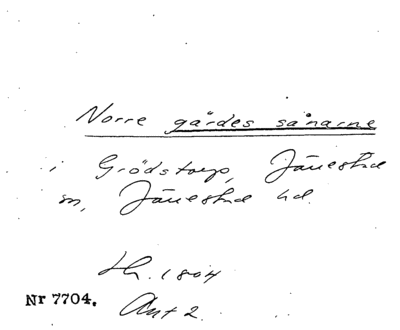 Norre gårdes sånarne
i Grödstorp, Jänestad
sn, Jänestad hd.
Hr. 1804
Nr 7704.
Ant 2